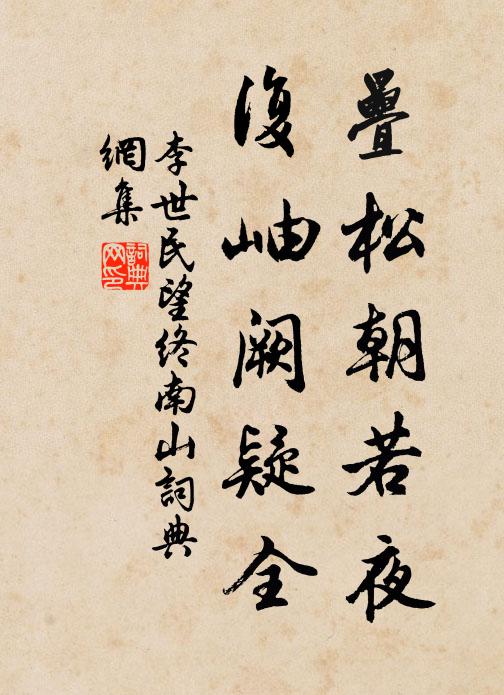 疊松朝若夜
復岫闕疑全
李世民望終南山詞典
網集
詞典
网印